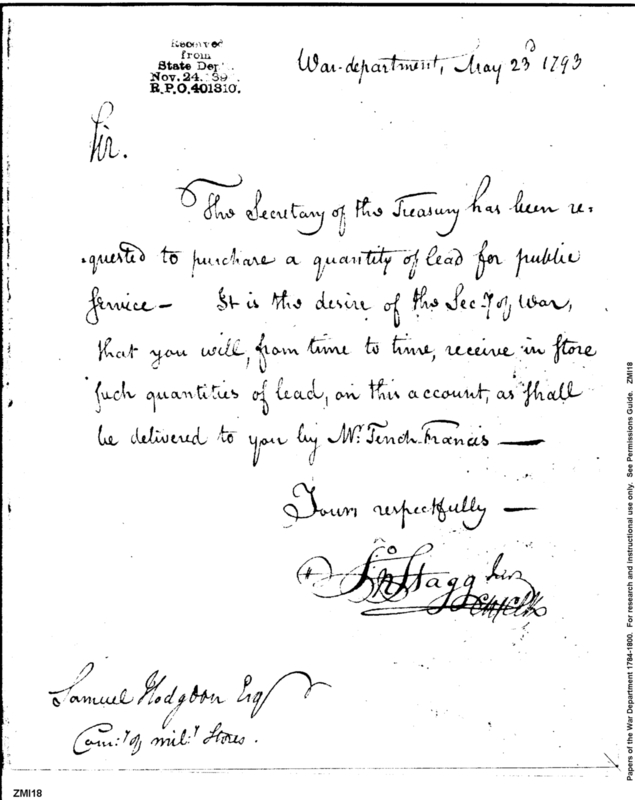 Received
from
State Dep't.
Nov. 24. '39.
R.P.O. 401810.
War-department, May 23d 1793
Sir.
The Secretary of the Treasury has been re-
-quested to purchase a quantity of lead for public
service — It is the desire of the Sec.y of War,
that you will, from time to time, receive in store
such quantities of lead, on this account, as shall
be delivered to you by Mr. Tench Francis —
Yours respectfully —
Jno Stagg Junr
Ch. Clk
Samuel Hodgdon Esq
Com:y of mil:y Stores.
Papers of the War Department 1784-1800. For research and instructional use only. See Permissions Guide. ZMI18
ZMI18